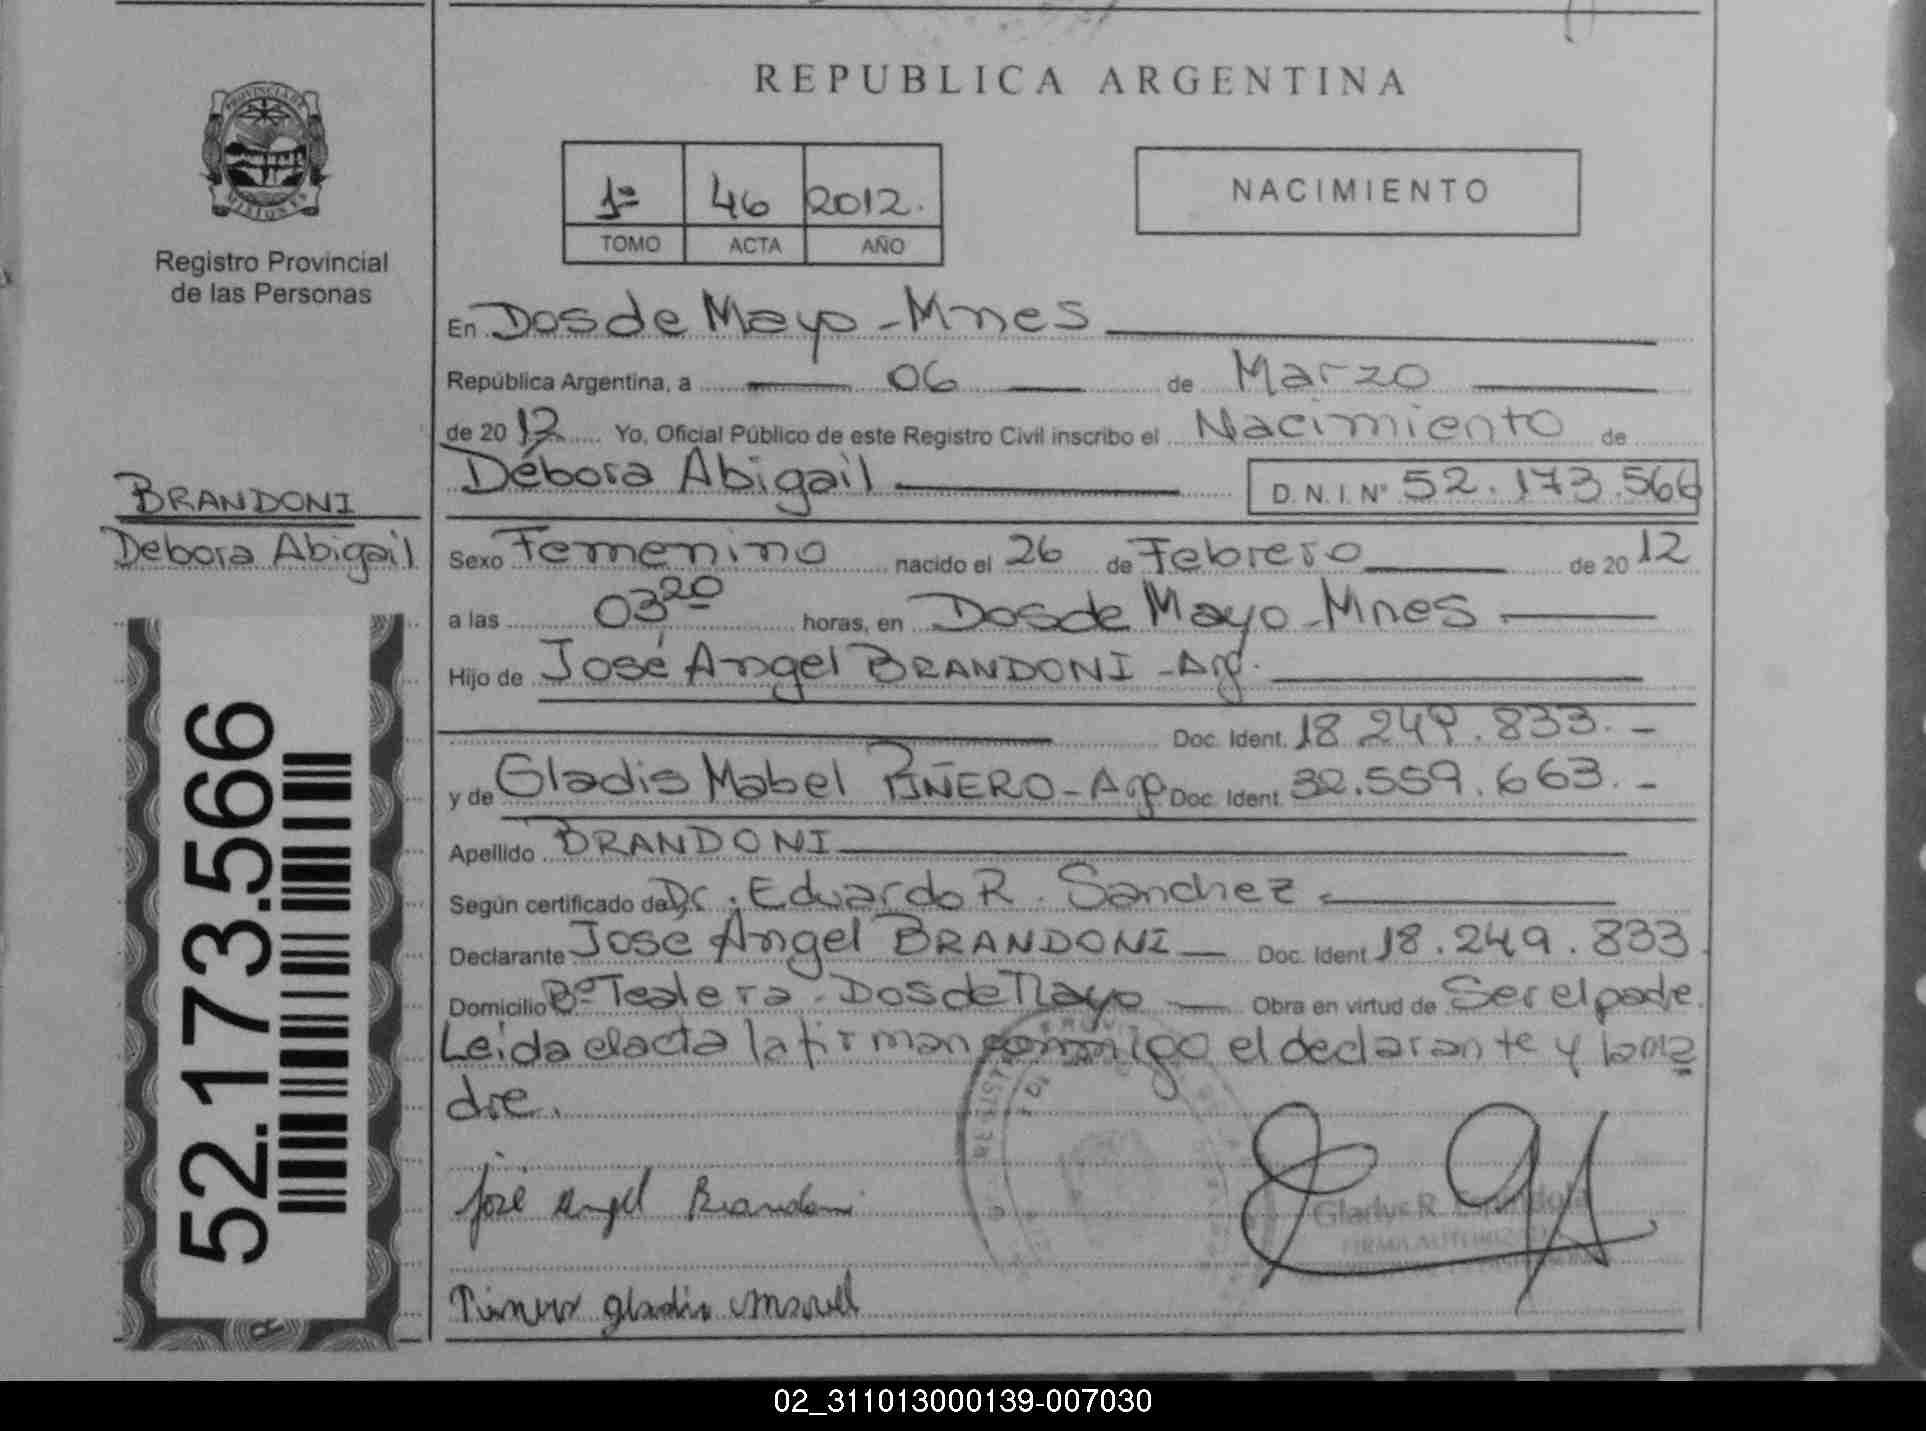 REPUBLICA ARGENTINA
PROVINCIA DE
MISIONES
Registro Provincial
de las Personas
1º 46 2012.
TOMO ACTA AÑO
NACIMIENTO
En Dos de Mayo - Mnes
República Argentina, a 06 de Marzo
de 2012 Yo, Oficial Público de este Registro Civil inscribo el Nacimiento de
Débora Abigail D.N.I. Nº 52.173.566
BRANDONI
Debora Abigail
Sexo Femenino nacido el 26 de Febrero de 2012
a las 03 20 horas, en Dos de Mayo - Mnes
Hijo de José Angel BRANDONI - Arg.
Doc. Ident. 18.249.833.-
y de Gladis Mabel PIÑERO - Arg Doc. Ident. 32.559.663.-
Apellido BRANDONI
Según certificado de Dr. Eduardo R. Sanchez
Declarante Jose Angel BRANDONI Doc. Ident 18.249.833
Domicilio Bº Tealera - Dos de Mayo Obra en virtud de Ser el padre.
Leida el acta la firman conmigo el declarante y la ma
dre.
52.173.566
José Angel Brandoni
Gladys R. Espindola
FIRMA AUTORIZADA
Piñero gladis
02_311013000139-007030